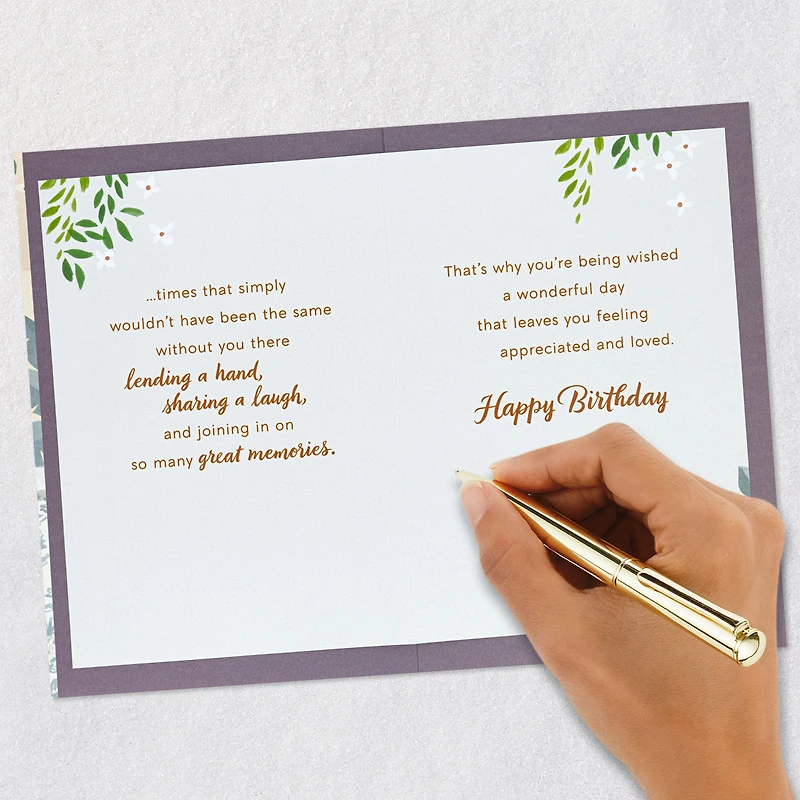 ...times that simply
wouldn't have been the same
without you there
lending a hand,
sharing a laugh,
and joining in on
so many great memories.
That's why you're being wished
a wonderful day
that leaves you feeling
appreciated and loved.
Happy Birthday